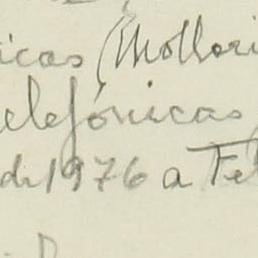 icas (Mollari
elefónicas
de 1976 a Fe